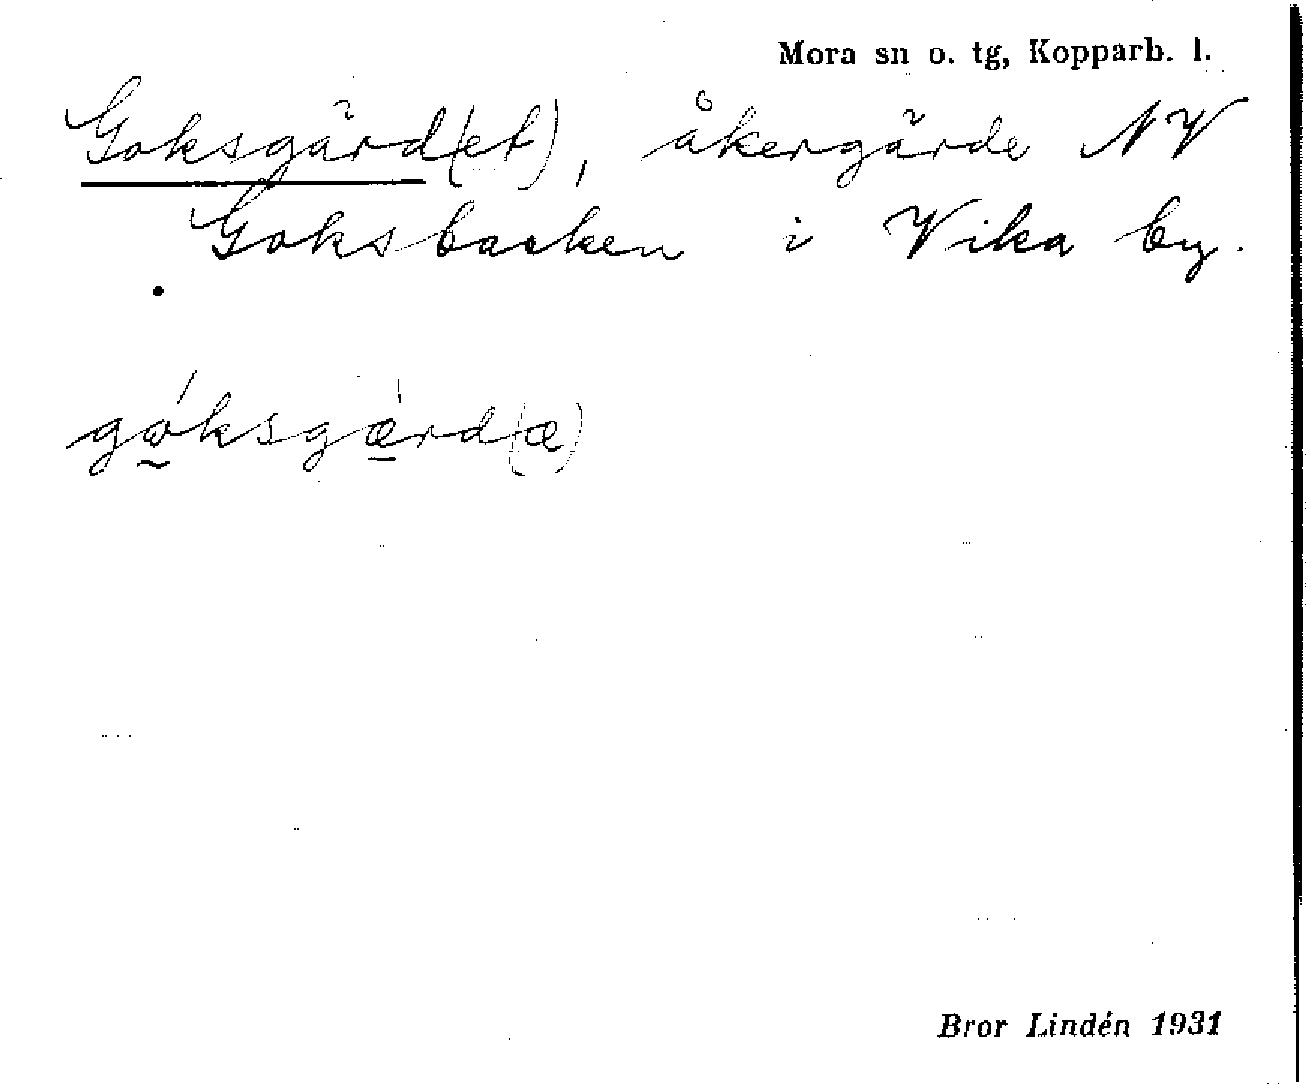 Mora sn o. tg, Kopparb. l.
Goksgärd(et), åkergärde NV
Goksbacken i Vika by.
góksgæ̀rd(æ)
Bror Lindén 1931